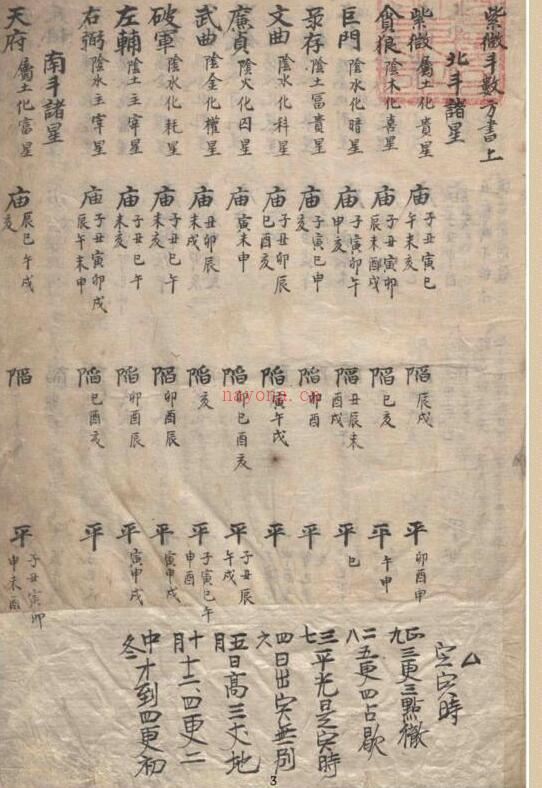 紫微斗數方書上
北斗諸星
紫微 屬土化貴星 庙 子丑寅巳午未亥 陷 辰戌 平 卯酉申
貪狼 陰木化喜星 庙 子丑寅卯辰未酉戌 陷 巳亥 平 午申
巨門 陰水化暗星 庙 子寅卯午申亥 陷 丑辰未酉戌 平 巳
录存 陰土富貴星 庙 子寅巳申亥 陷 卯酉 平
文曲 陰水化科星 庙 子丑卯辰巳酉亥 陷 寅午戌 平
廉貞 陰火化囚星 庙 寅未申 陷 卯巳酉亥 平 子丑辰午戌
武曲 陰金化權星 庙 丑卯辰未戌 陷 亥 平 子寅巳午申酉
破軍 陰水化耗星 庙 子丑巳午未亥 陷 卯酉辰 平 寅申戌
左輔 陰土主宰星 庙 子丑巳午未亥 陷 卯酉辰 平 寅申戌
右弼 陰水主宰星 庙 子丑寅卯戌辰午未申 陷 巳酉亥 平
南斗諸星
天府 屬土化富星 庙 辰巳午戌亥 陷 平 子丑寅卯申未酉
定寅時
正九三更三點徹
二八五更四占歇
三七平光是寅時
四六日出寅無別
五月日高三丈地
十月十二四更二
中冬才到四更初
nayona.cn
3